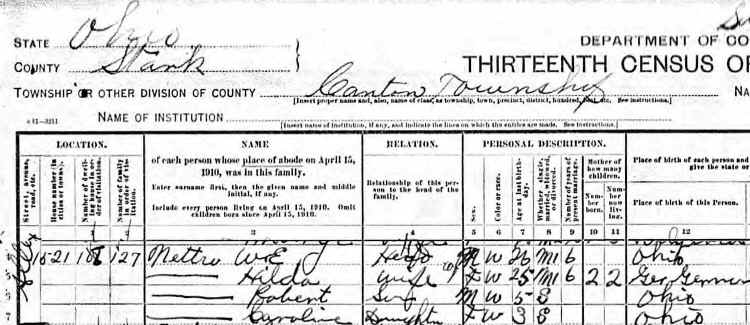 STATE Ohio
DEPARTMENT OF CO
COUNTY Stark
THIRTEENTH CENSUS OF
TOWNSHIP OR OTHER DIVISION OF COUNTY Canton Township NA
[Insert proper name and, also, name of class, as township, town, precinct, district, hundred, beat, etc. See instructions.]
NAME OF INSTITUTION
[Insert name of institution, if any, and indicate the lines on which the entries are made. See instructions.]
LOCATION. NAME RELATION. PERSONAL DESCRIPTION.
of each person whose place of abode on April 15, 1910, was in this family.
Enter surname first, then the given name and middle initial, if any.
Include every person living on April 15, 1910. Omit children born since April 15, 1910.
Relationship of this person to the head of the family.
Street, avenue, road, etc.
House number (in cities or towns).
Number of dwelling house in order of visitation.
Number of family in order of visitation.
Sex.
Color or race.
Age at last birthday.
Whether single, married, widowed, or divorced.
Number of years of present marriage.
Mother of how many children.
Number born.
Number now living.
Place of birth of each person and
give the state or
Place of birth of this Person.
3 4 5 6 7 8 9 10 11 12
1521 127 Nettro W E Head M W 26 M1 6 Ohio
Hilda Wife F W 25 M1 6 2 2 Ger German
Robert Son M W 5 S Ohio
Caroline Daughter F W 3 S Ohio